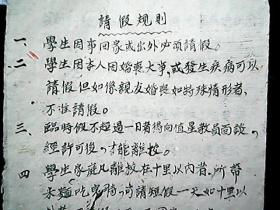 請假规則
一、學生因事回家或出外必須請假。
二、學生因本人因婚喪大事，或發生疾病可以
請假但如像親友婚喪如特殊情形者，
不准請假。
三、臨時假不超過一日者得向值星教員面談，
經許可後，才能離校。
四 學生家庭凡離校在十里以内者，所帶
米糧吃完 可請短假一天如十里以